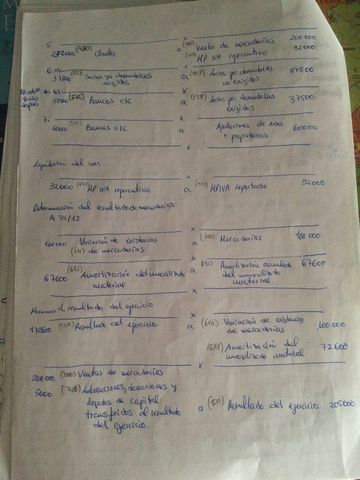 5.
232000 (430) Clientes a (700) Venta de mercaderías 200000
HP IVA repercutido 32000
37500 Socios por desembolsos exigidos a Socios por desembolsos no exigidos 37500
37500 (572) Bancos c/c a (558) Socios por desembolsos exigidos 37500
7.
60000 (572) Bancos c/c a Aportaciones de socios o propietarios 60000
Liquidación del IVA:
32000 (477) HP IVA repercutido a HP IVA soportado 32000
Determinación del resultado de mercaderías:
A 31/12
100000 Variación de existencias de mercaderías a (300) Mercaderías 100000
67600 (681) Amortización del inmovilizado material a (281) Amortización acumulada del inmovilizado material 67600
resultado del ejercicio
(129) Resultado del ejercicio a (610) Variación de existencias de mercaderías 100000
(681) Amortización del inmovilizado material 72600
200000 (700) Ventas de mercaderías
5000 Subvenciones, donaciones y legados de capital transferidos al resultado del ejercicio. a (129) Resultado del ejercicio 205000